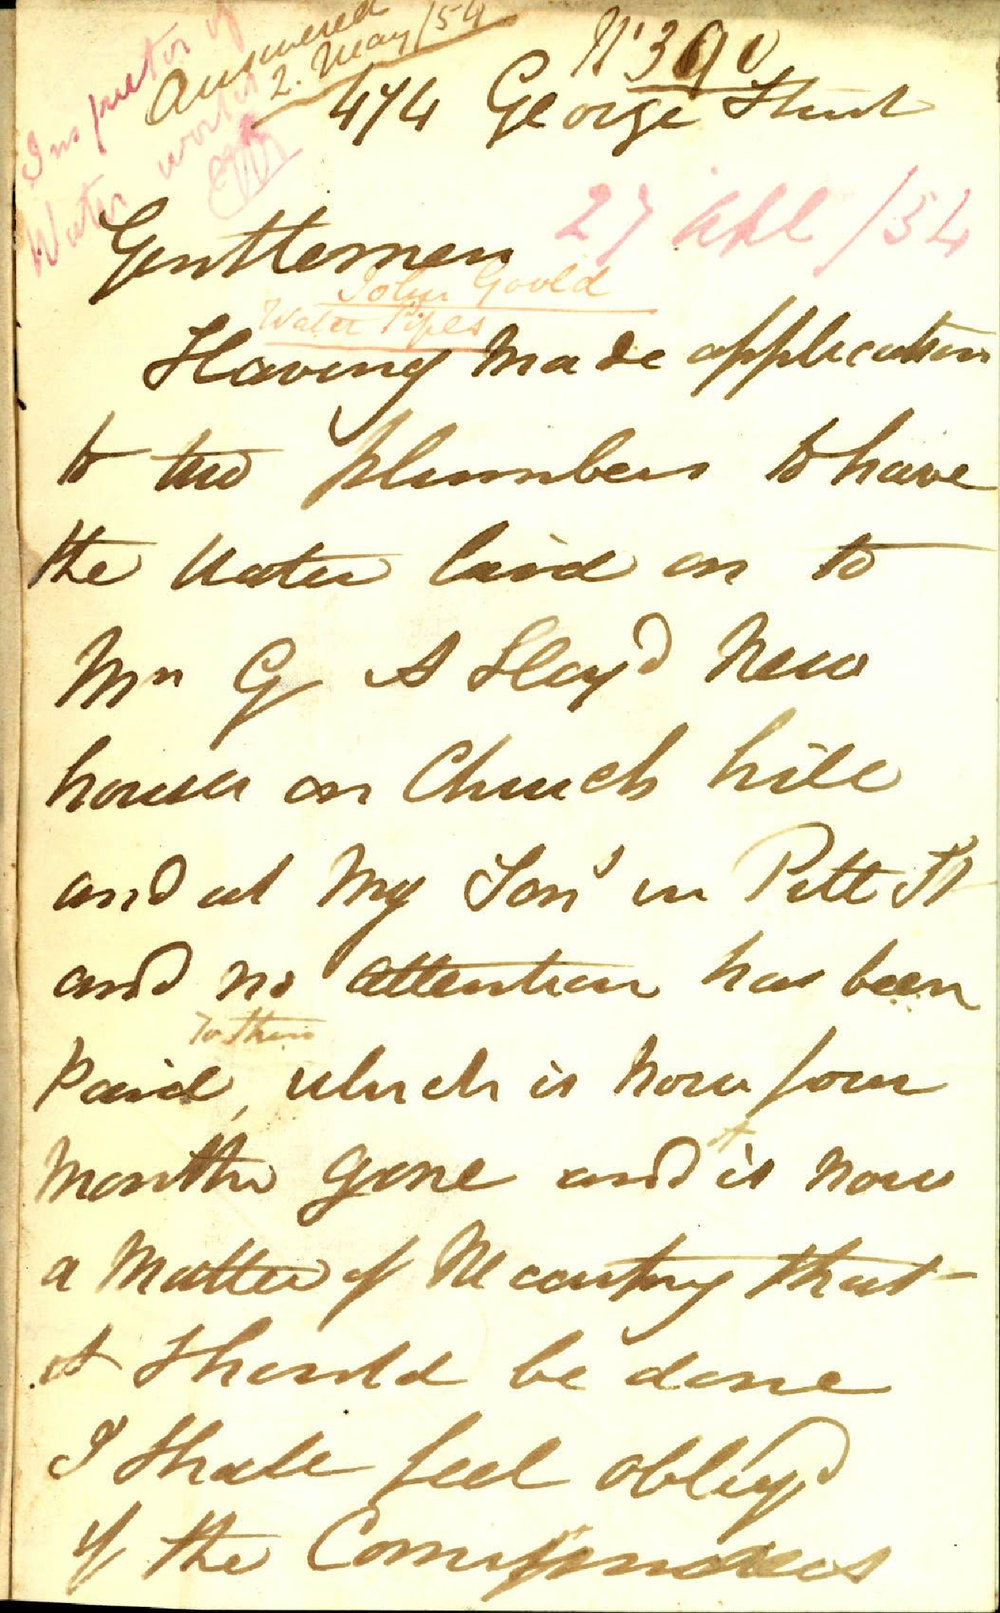 Inspector of
Water works
Answered
2. May/54
No 390
474 George Street
27 Apl /54
Gentlemen
John Gould
Water Pipes
Having Made application
to two plumbers to have
the Water laid on to
Mr G A Lloyd New
houses on Church hill
and at My Son's in Pitt St
and no attention has been
to this
Paid, which is now four
Months gone and it is now
a Matter of that
it Should be done
I Shall feel oblig'd
if the